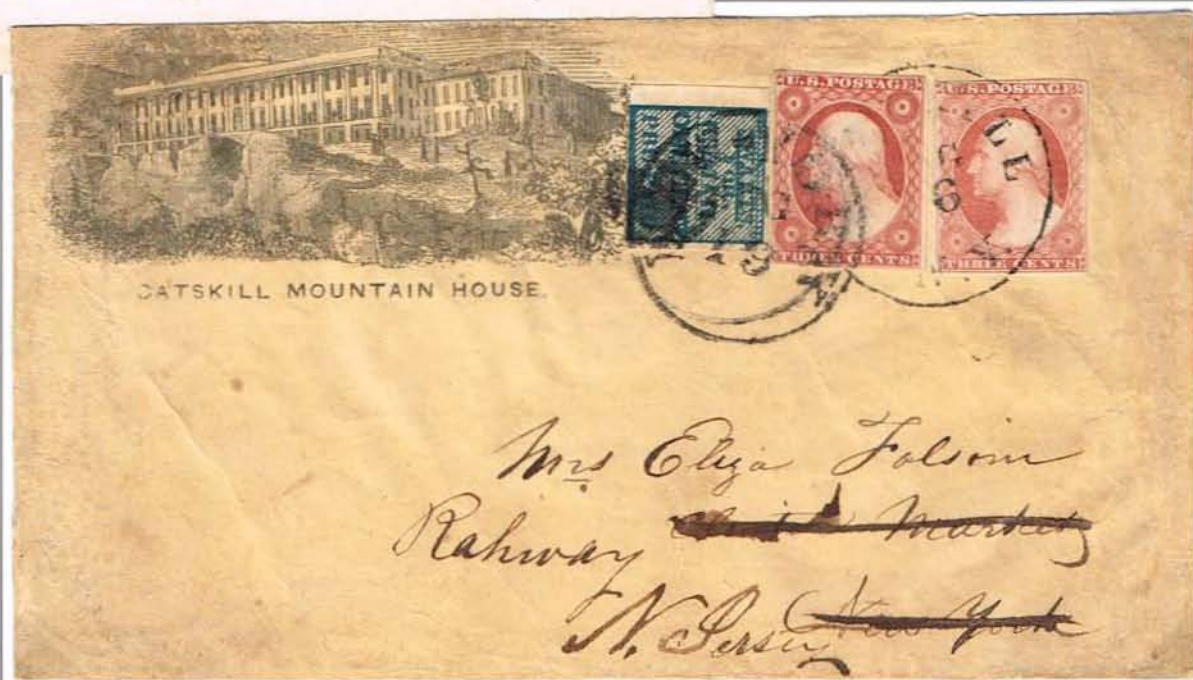 CATSKILL MOUNTAIN HOUSE.
U.S. POSTAGE
THREE CENTS
U.S. POSTAGE
THREE CENTS
Mrs Eliza Folsom
Market
Rahway
New York
N. Jersey